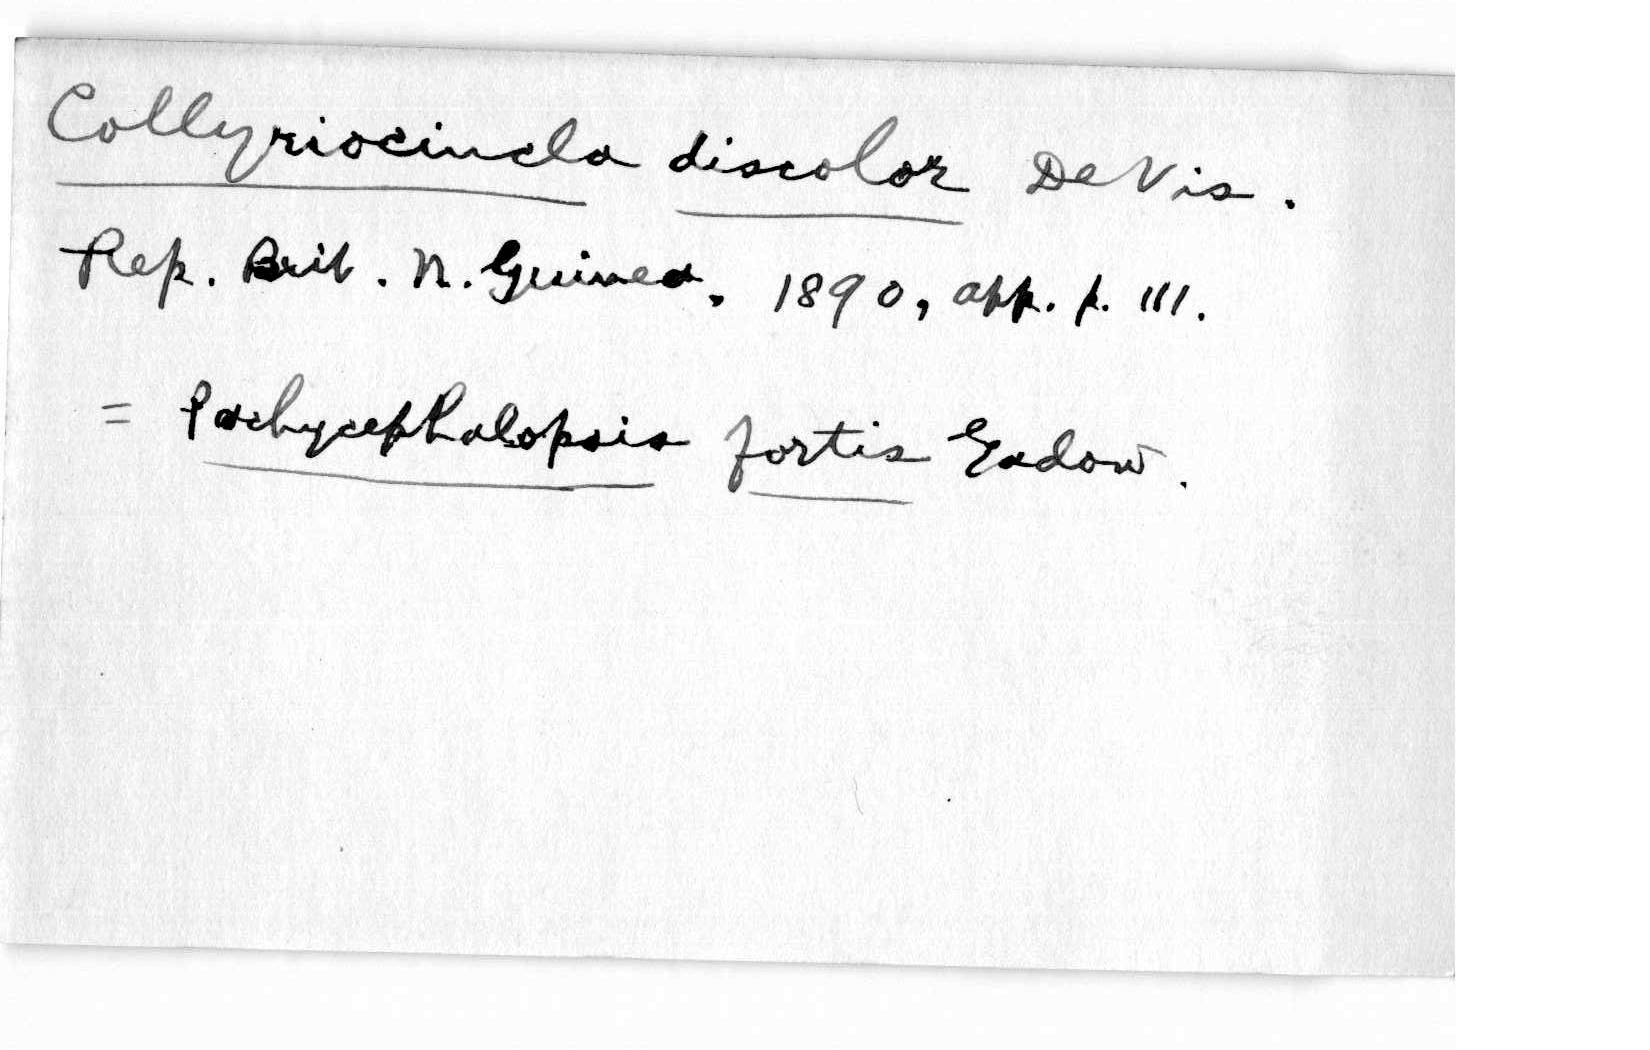 Collyriocincla discolor De Vis.
Rep. Brit. N. Guinea, 1890, app. p. 111.
= Pachycephalopsis fortis Gadow.